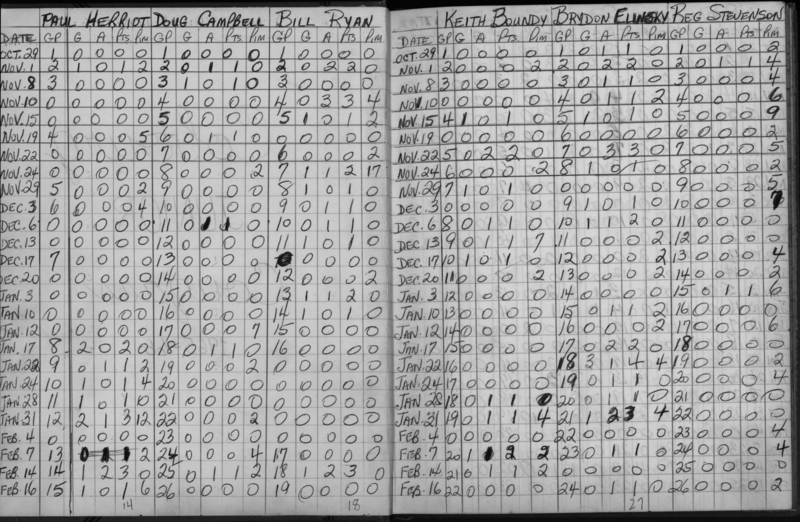 PAUL HERRIOT DOUG CAMPBELL BILL RYAN
DATE GP G A Pts Pim GP G A Pts Pim GP G A Pts Pim
OCT.29 1 0 0 0 0 1 0 0 0 0 1 0 0 0 0
NOV.1 2 1 0 1 2 2 0 1 1 0 2 0 2 2 0
NOV.8 3 0 0 0 0 3 1 0 1 0 3 0 0 0 0
NOV.10 0 0 0 0 0 4 0 0 0 0 4 0 3 3 4
NOV.15 0 0 0 0 0 5 0 0 0 0 5 1 0 1 2
NOV.19 4 0 0 0 5 6 0 1 0 0 0 0 0 0
NOV.22 0 0 0 0 0 7 0 0 0 0 6 0 0 0 2
NOV.24 0 0 0 0 0 8 0 0 0 2 7 1 1 2 17
NOV.29 5 0 0 0 2 9 0 0 0 0 8 1 0 1 0
DEC.3 6 0 0 0 4 10 0 0 0 0 9 0 1 1 0
DEC.6 0 0 0 0 0 11 0 1 1 0 10 0 1 1 0
DEC.13 0 0 0 0 0 12 0 0 0 0 11 1 0 1 0
DEC.17 7 0 0 0 0 13 0 0 0 0 0 0 0 0
DEC.20 0 0 0 0 0 14 0 0 0 0 12 0 0 0 2
JAN.3 0 0 0 0 0 15 0 0 0 0 13 1 1 2 0
JAN.10 0 0 0 0 0 16 0 0 0 0 14 1 0 1 0
JAN.12 0 0 0 0 0 17 0 0 0 7 15 0 0 0 0
JAN.17 8 2 0 2 0 18 0 1 1 0 16 0 0 0 0
JAN.22 9 0 1 1 2 19 0 0 0 2 0 0 0 0 0
JAN.24 10 1 0 1 4 20 0 0 0 0 0 0 0 0 0
JAN.28 11 0 1 1 2 21 0 0 0 0 0 0 0 0 0
JAN.31 12 2 1 3 12 22 0 0 0 2 0 0 0 0 0
FEB.4 0 0 0 0 0 23 0 0 0 0 0 0 0 0 0
FEB.7 13 0 1 1 2 24 0 0 0 4 17 0 0 0 0
FEB.14 14 1 2 3 0 25 0 1 1 2 18 1 2 3 0
FEB.16 15 1 0 1 6 26 0 0 0 0 19 0 0 0 0
14 18
KEITH BOUNDY BRYDON ELINSKY REG STEVENSON
DATE GP G A Pts Pim GP G A Pts Pim GP G A Pts Pim
OCT.29 1 0 0 0 0 1 0 1 1 0 1 0 0 0 2
NOV.1 2 0 0 0 2 2 0 2 2 0 2 0 1 1 4
NOV.8 3 0 0 0 0 3 0 1 1 0 3 0 0 0 4
NOV.10 0 0 0 0 0 4 0 1 1 2 4 0 0 0 6
NOV.15 4 1 0 1 0 5 1 0 1 0 5 0 0 0 9
NOV.19 0 0 0 0 0 6 0 0 0 0 6 0 0 0 2
NOV.22 5 0 2 2 0 7 0 3 3 0 7 0 0 0 5
NOV.24 6 0 0 0 2 8 1 0 1 0 8 0 0 0 2
NOV.29 7 1 0 1 0 0 0 0 0 0 9 0 0 0 5
DEC.3 0 0 0 0 0 9 1 0 1 0 10 0 0 0 7
DEC.6 8 0 1 1 0 10 1 1 2 0 11 0 0 0 0
DEC.13 9 0 1 1 7 11 0 0 0 2 12 0 0 0 0
DEC.17 10 1 0 1 0 12 0 0 0 2 13 0 0 0 4
DEC.20 11 0 0 0 2 13 0 0 0 2 14 0 0 0 2
JAN.3 12 0 0 0 0 14 0 0 0 0 15 0 1 1 6
JAN.10 13 0 0 0 0 15 0 1 1 2 16 0 0 0 0
JAN.12 14 0 0 0 0 16 0 0 0 2 17 0 0 0 6
JAN.17 15 0 0 0 0 17 0 2 2 0 18 0 0 0 0
JAN.22 16 0 0 0 0 18 3 1 4 4 19 0 0 0 2
JAN.24 17 0 0 0 0 19 0 1 1 0 20 0 0 0 4
JAN.28 18 0 1 1 0 20 0 1 1 0 21 0 0 0 0
JAN.31 19 0 1 1 4 21 1 2 3 4 22 0 0 0 0
FEB.4 0 0 0 0 0 22 0 0 0 0 23 0 0 0 4
FEB.7 20 1 1 2 2 23 0 1 1 0 24 0 0 0 4
FEB.14 21 0 1 1 2 0 0 0 0 0 25 0 0 0 0
FEB.16 22 0 0 0 0 24 0 1 1 0 26 0 0 0 2
27